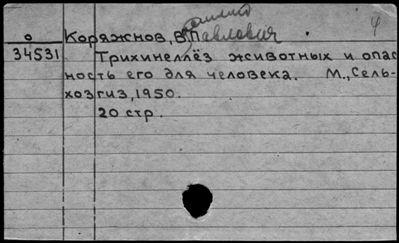 Василий
о Коряжнов, В.Павлович
34531 Трихинеллёз животных и опас
ность его для человека. М., Сель-
хозгиз, 1950.
20 стр.